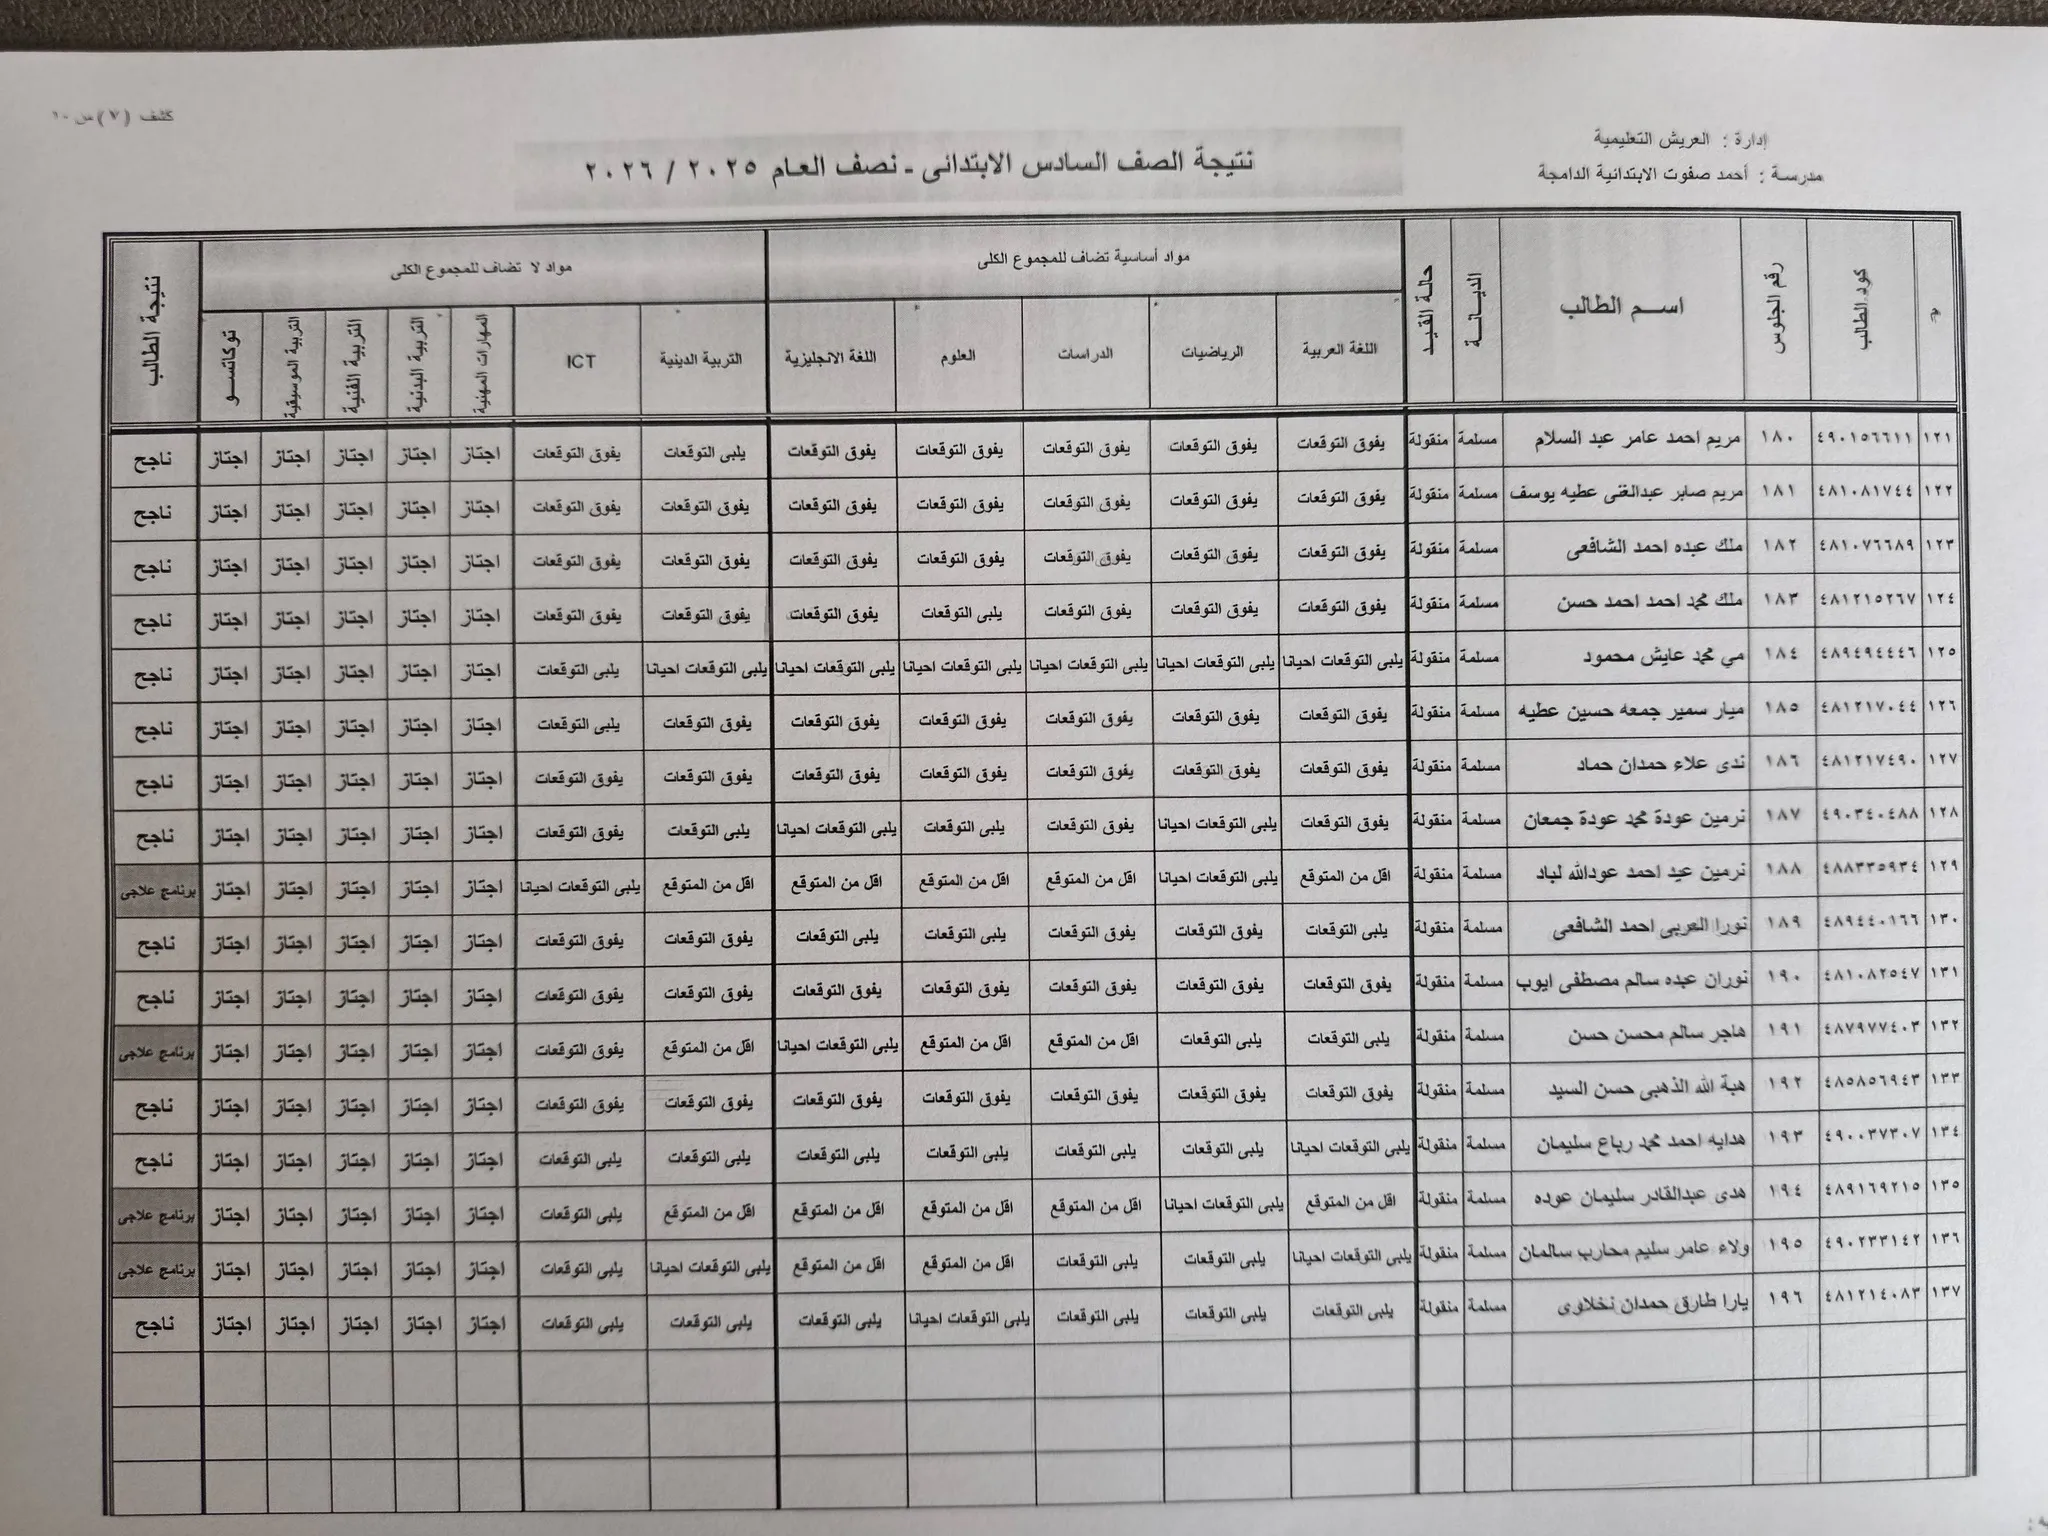 كشف (٧) من ١٠
إدارة : العريش التعليمية
مدرسة : أحمد صفوت الابتدائية الدامجة
نتيجة الصف السادس الابتدائى - نصف العام ٢٠٢٥ / ٢٠٢٦
م كود الطالب رقم الجلوس اسم الطالب الديانة حالة القيد مواد أساسية تضاف للمجموع الكلى مواد لا تضاف للمجموع الكلى نتيجة الطالب
اللغة العربية الرياضيات الدراسات العلوم اللغة الانجليزية التربية الدينية ICT المهارات المهنية التربية البدنية التربية الفنية التربية الموسيقية توكاتسو
١٢١ ٤٩٠١٥٦٦١١ ١٨٠ مريم احمد عامر عبد السلام مسلمة منقولة يفوق التوقعات يفوق التوقعات يفوق التوقعات يفوق التوقعات يفوق التوقعات يلبى التوقعات يفوق التوقعات اجتاز اجتاز اجتاز اجتاز اجتاز ناجح
١٢٢ ٤٨١٠٨١٧٤٤ ١٨١ مريم صابر عبدالغنى عطيه يوسف مسلمة منقولة يفوق التوقعات يفوق التوقعات يفوق التوقعات يفوق التوقعات يفوق التوقعات يفوق التوقعات يفوق التوقعات اجتاز اجتاز اجتاز اجتاز اجتاز ناجح
١٢٣ ٤٨١٠٧٦٦٨٩ ١٨٢ ملك عبده احمد الشافعى مسلمة منقولة يفوق التوقعات يفوق التوقعات يفوق التوقعات يفوق التوقعات يفوق التوقعات يفوق التوقعات يفوق التوقعات اجتاز اجتاز اجتاز اجتاز اجتاز ناجح
١٢٤ ٤٨١٢١٥٢٦٧ ١٨٣ ملك محمد احمد احمد حسن مسلمة منقولة يفوق التوقعات يفوق التوقعات يفوق التوقعات يلبى التوقعات يفوق التوقعات يفوق التوقعات يفوق التوقعات اجتاز اجتاز اجتاز اجتاز اجتاز ناجح
١٢٥ ٤٨٩٤٩٤٤٤٦ ١٨٤ مي محمد عايش محمود مسلمة منقولة يلبى التوقعات احيانا يلبى التوقعات احيانا يلبى التوقعات احيانا يلبى التوقعات احيانا يلبى التوقعات احيانا يلبى التوقعات احيانا يلبى التوقعات اجتاز اجتاز اجتاز اجتاز اجتاز ناجح
١٢٦ ٤٨١٢١٧٠٤٤ ١٨٥ ميار سمير جمعه حسين عطيه مسلمة منقولة يفوق التوقعات يفوق التوقعات يفوق التوقعات يفوق التوقعات يفوق التوقعات يفوق التوقعات يلبى التوقعات اجتاز اجتاز اجتاز اجتاز اجتاز ناجح
١٢٧ ٤٨١٢١٧٤٩٠ ١٨٦ ندى علاء حمدان حماد مسلمة منقولة يفوق التوقعات يفوق التوقعات يفوق التوقعات يفوق التوقعات يفوق التوقعات يفوق التوقعات يفوق التوقعات اجتاز اجتاز اجتاز اجتاز اجتاز ناجح
١٢٨ ٤٩٠٣٤٠٤٨٨ ١٨٧ نرمين عودة محمد عودة جمعان مسلمة منقولة يفوق التوقعات يلبى التوقعات احيانا يفوق التوقعات يلبى التوقعات يلبى التوقعات احيانا يلبى التوقعات يفوق التوقعات اجتاز اجتاز اجتاز اجتاز اجتاز ناجح
١٢٩ ٤٨٨٣٣٥٩٣٤ ١٨٨ نرمين عيد احمد عودالله لباد مسلمة منقولة اقل من المتوقع يلبى التوقعات احيانا اقل من المتوقع اقل من المتوقع اقل من المتوقع اقل من المتوقع يلبى التوقعات احيانا اجتاز اجتاز اجتاز اجتاز اجتاز برنامج علاجى
١٣٠ ٤٨٩٤٤٠١٦٦ ١٨٩ نورا العربى احمد الشافعى مسلمة منقولة يلبى التوقعات يفوق التوقعات يفوق التوقعات يلبى التوقعات يلبى التوقعات يفوق التوقعات يفوق التوقعات اجتاز اجتاز اجتاز اجتاز اجتاز ناجح
١٣١ ٤٨١٠٨٢٥٤٧ ١٩٠ نوران عبده سالم مصطفى ايوب مسلمة منقولة يفوق التوقعات يفوق التوقعات يفوق التوقعات يفوق التوقعات يفوق التوقعات يفوق التوقعات يفوق التوقعات اجتاز اجتاز اجتاز اجتاز اجتاز ناجح
١٣٢ ٤٨٧٩٧٧٤٠٣ ١٩١ هاجر سالم محسن حسن مسلمة منقولة يلبى التوقعات يلبى التوقعات اقل من المتوقع اقل من المتوقع يلبى التوقعات احيانا اقل من المتوقع يفوق التوقعات اجتاز اجتاز اجتاز اجتاز اجتاز برنامج علاجى
١٣٣ ٤٨٥٨٥٦٩٤٣ ١٩٢ هبة الله الذهبى حسن السيد مسلمة منقولة يفوق التوقعات يفوق التوقعات يفوق التوقعات يفوق التوقعات يفوق التوقعات يفوق التوقعات يفوق التوقعات اجتاز اجتاز اجتاز اجتاز اجتاز ناجح
١٣٤ ٤٩٠٠٣٧٣٠٧ ١٩٣ هدايه احمد محمد رباع سليمان مسلمة منقولة يلبى التوقعات احيانا يلبى التوقعات يلبى التوقعات يلبى التوقعات يلبى التوقعات يلبى التوقعات يلبى التوقعات اجتاز اجتاز اجتاز اجتاز اجتاز ناجح
١٣٥ ٤٨٩١٦٩٢١٥ ١٩٤ هدى عبدالقادر سليمان عوده مسلمة منقولة اقل من المتوقع يلبى التوقعات احيانا اقل من المتوقع اقل من المتوقع اقل من المتوقع اقل من المتوقع يلبى التوقعات اجتاز اجتاز اجتاز اجتاز اجتاز برنامج علاجى
١٣٦ ٤٩٠٢٣٣١٤٢ ١٩٥ ولاء عامر سليم محارب سالمان مسلمة منقولة يلبى التوقعات احيانا يلبى التوقعات يلبى التوقعات اقل من المتوقع اقل من المتوقع يلبى التوقعات احيانا يلبى التوقعات اجتاز اجتاز اجتاز اجتاز اجتاز برنامج علاجى
١٣٧ ٤٨١٢١٤٠٨٣ ١٩٦ يارا طارق حمدان نخلاوى مسلمة منقولة يلبى التوقعات يلبى التوقعات يلبى التوقعات يلبى التوقعات احيانا يلبى التوقعات يلبى التوقعات يلبى التوقعات اجتاز اجتاز اجتاز اجتاز اجتاز ناجح